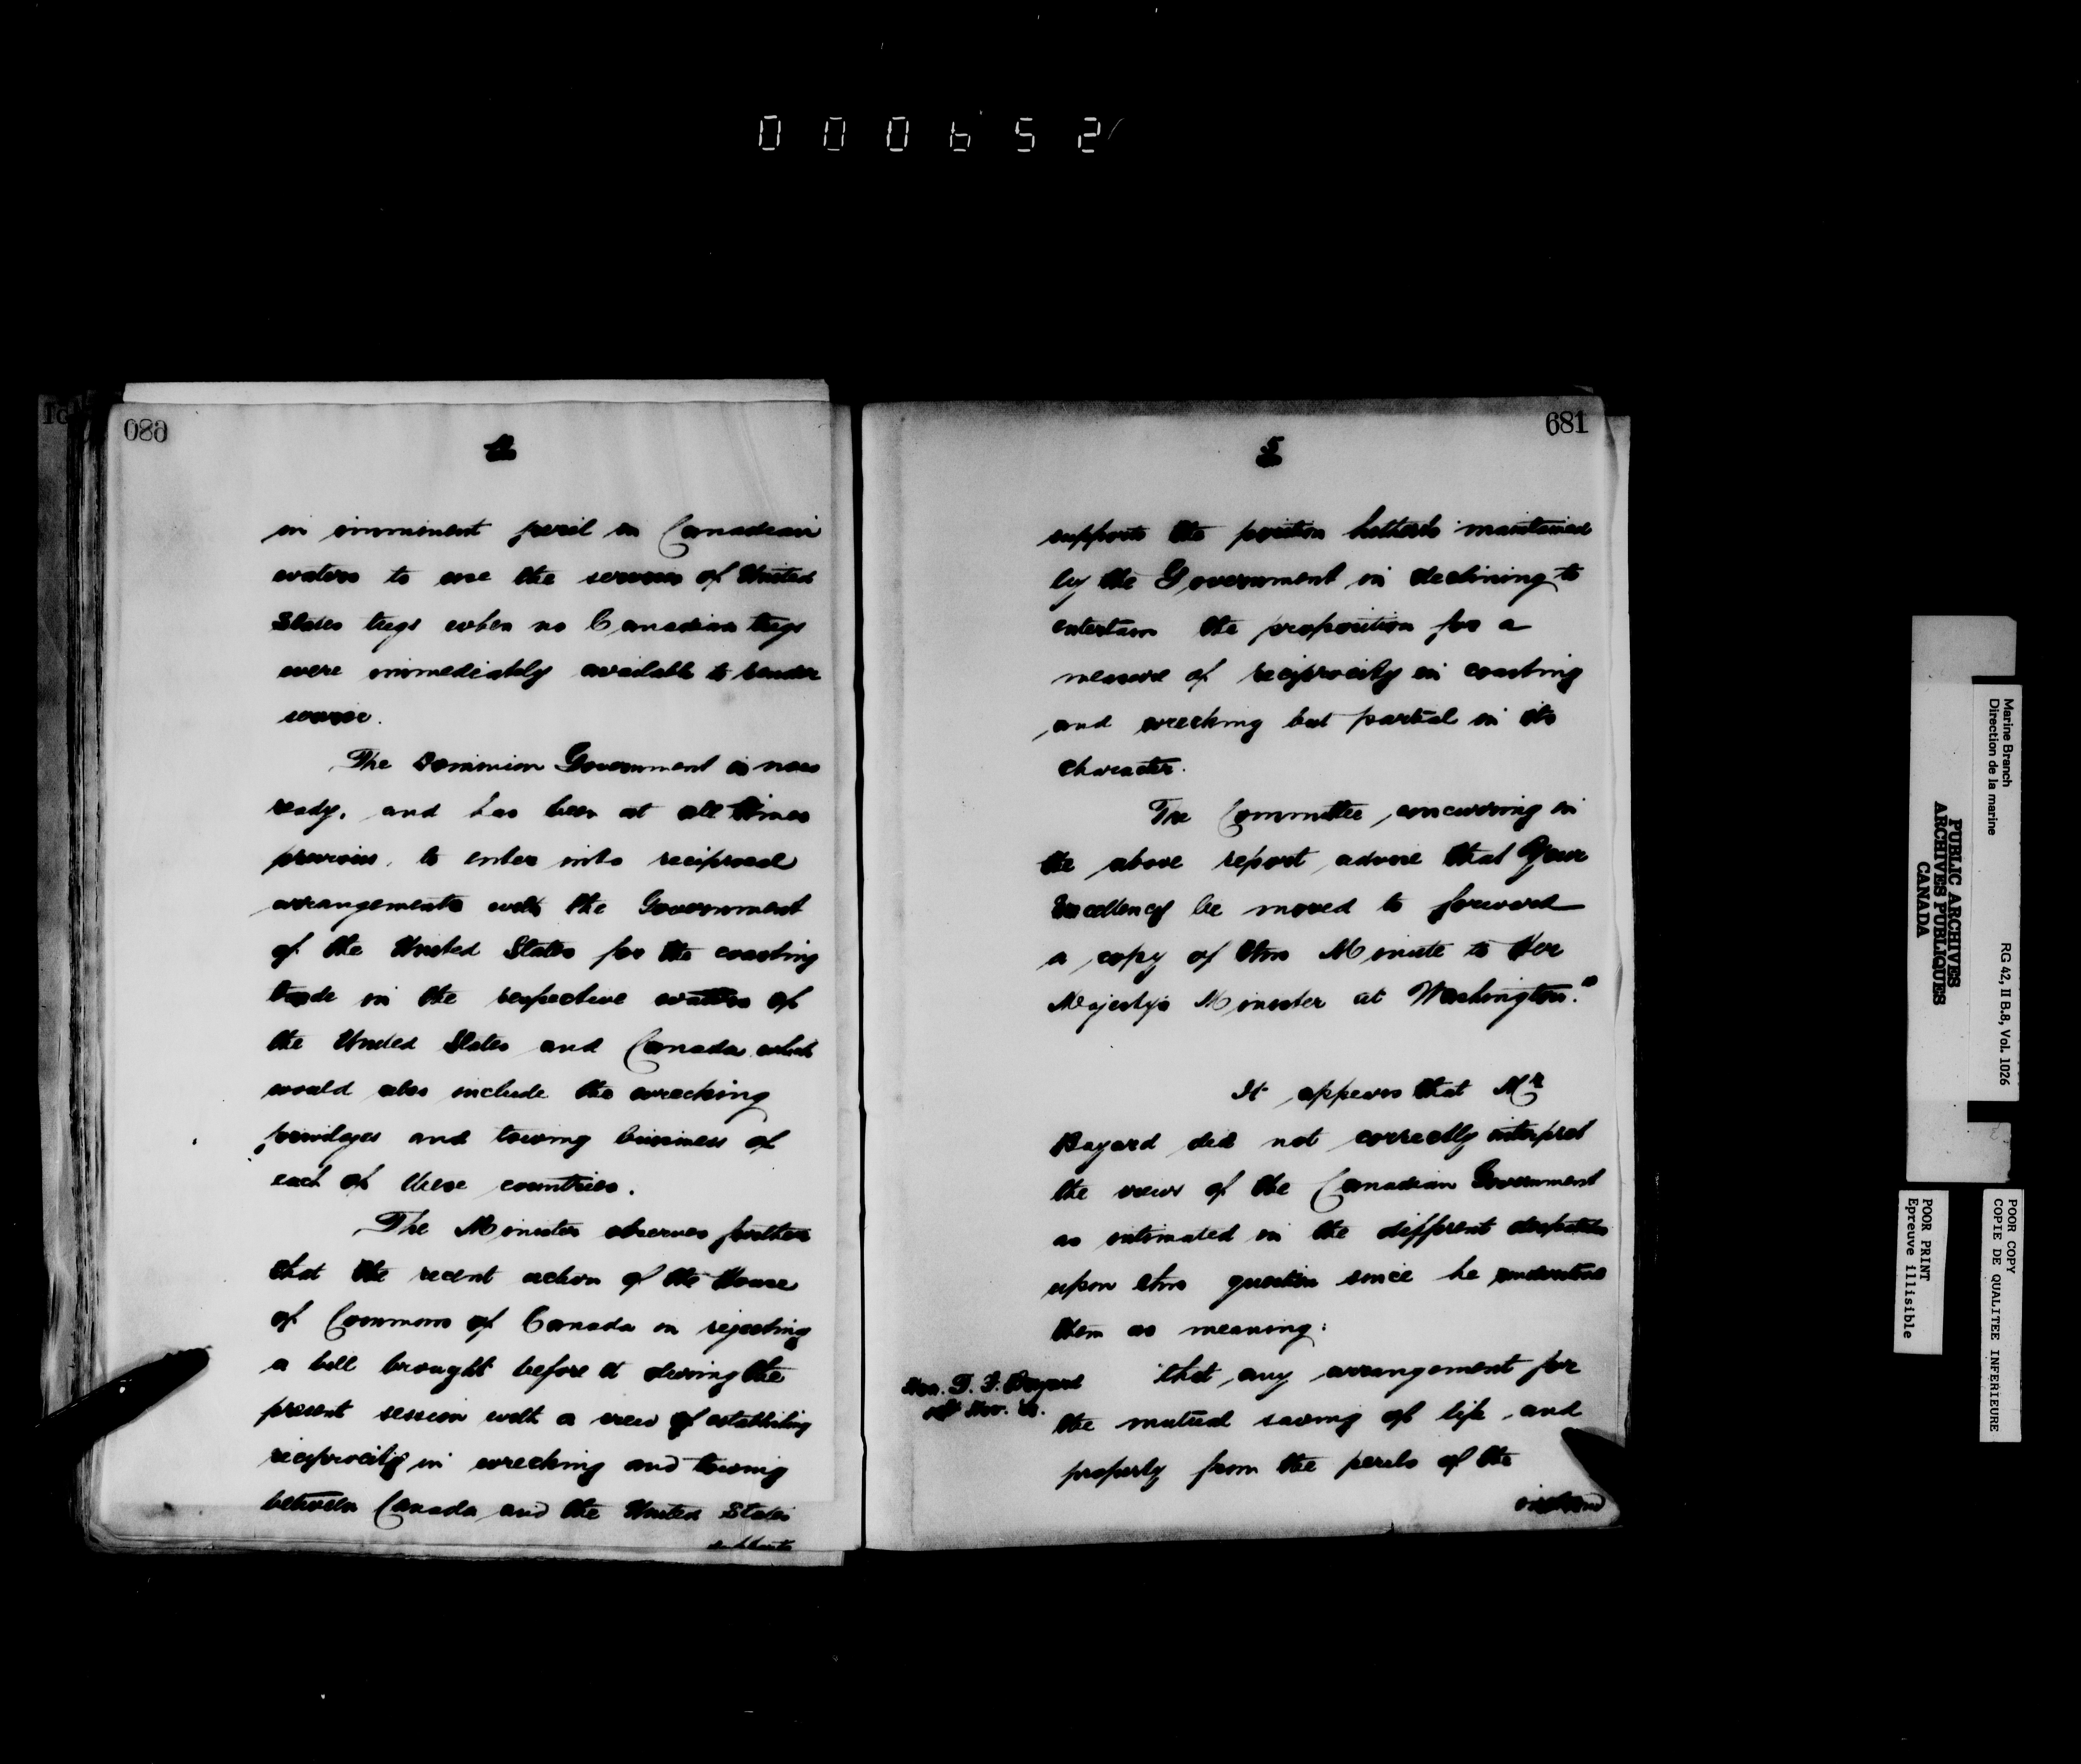 000652
080
4
in imminent peril in Canadian
waters to use the services of United
States tugs when no Canadian tugs
were immediately available to render
service.
The Dominion Government is now
ready, and has been at all times
previous, to enter into reciprocal
arrangements with the Government
of the United States for the coasting
trade in the respective waters of
the United States and Canada which
would also include the wrecking
privileges and towing business of
each of these countries.
The Minister observes further
that the recent action of the House
of Commons of Canada in rejecting
a bill brought before it during the
present session with a view of establishing
reciprocity in wrecking and towing
between Canada and the United States
681
5
supports the position hitherto maintained
by the Government in declining to
entertain the proposition for a
measure of reciprocity in coasting
and wrecking but partial in its
character.
The Committee, concurring in
the above report advise that Your
Excellency be moved to forward
a copy of this Minute to Her
Majesty's Minister at Washington."
It appears that Mr
Bayard did not correctly interpret
the views of the Canadian Government
as intimated in the different despatches
upon this question since he understood
them as meaning:
Hon. T. F. Bayard
Nov.
"that any arrangement for
the mutual saving of life and
property from the perils of the
Marine Branch
Direction de la marine
RG 42, II B.8, Vol. 1026
PUBLIC ARCHIVES
ARCHIVES PUBLIQUES
CANADA
POOR COPY
COPIE DE QUALITEE INFERIEURE
POOR PRINT
Epreuve illisible